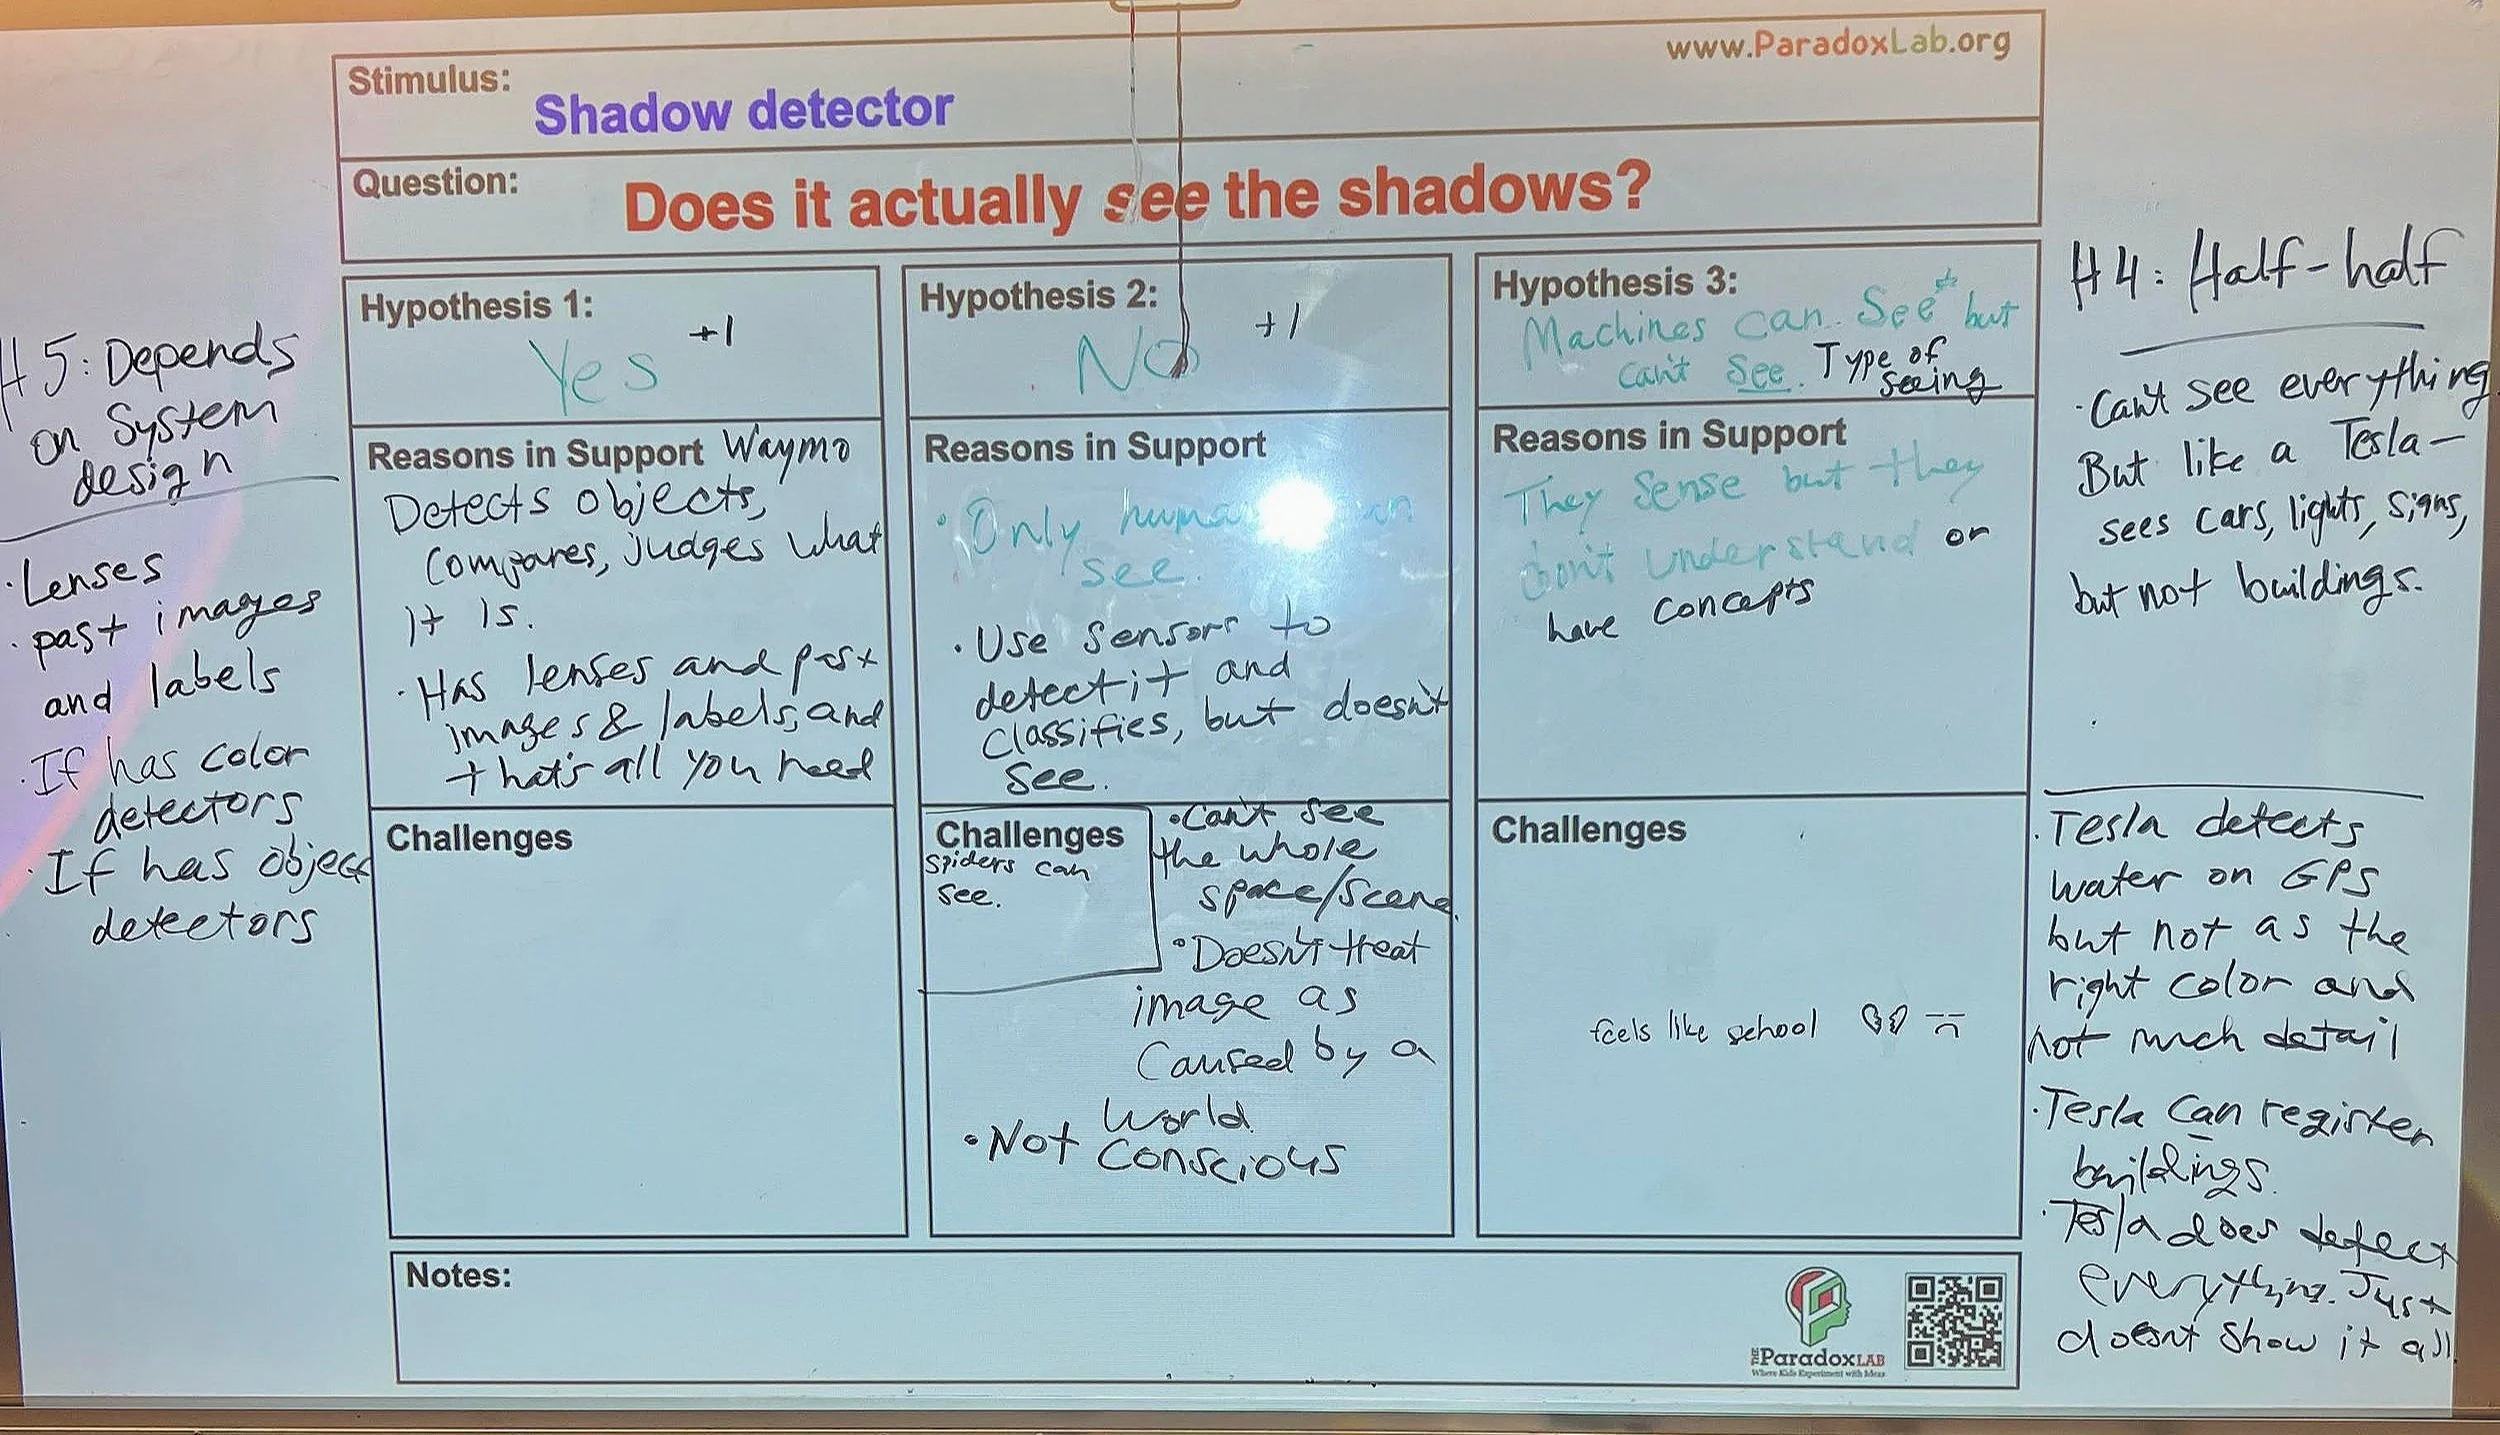 www.ParadoxLab.org
Stimulus:
Shadow detector
Question:
Does it actually see the shadows?
H5: Depends
on System
design
· Lenses
· past images
and labels
· If has color
detectors
· If has object
detectors
Hypothesis 1:
Yes +1
Reasons in Support Waymo
Detects objects,
compares, judges what
it is.
· Has lenses and past
images & labels, and
that's all you need
Challenges
Hypothesis 2:
No +1
Reasons in Support
· Only
see.
· Use sensors to
detect it and
classifies, but doesn't
see.
· Can't see
the whole
space/scene.
· Doesn't treat
image as
caused by a
world
· Not conscious
Challenges
spiders can
see.
Hypothesis 3:
Machines can see* but
can't see. Type of
seeing
Reasons in Support
They sense but they
don't understand or
have concepts
Challenges
feels like school
H4: Half-half
· Can't see everything
But like a Tesla—
sees cars, lights, signs,
but not buildings.
· Tesla detects
water on GPS
but not as the
right color and
not much detail
· Tesla can register
buildings.
· Tesla does detect
everything. Just
doesnt show it all.
Notes:
THE ParadoxLAB
Where Kids Experiment with Ideas